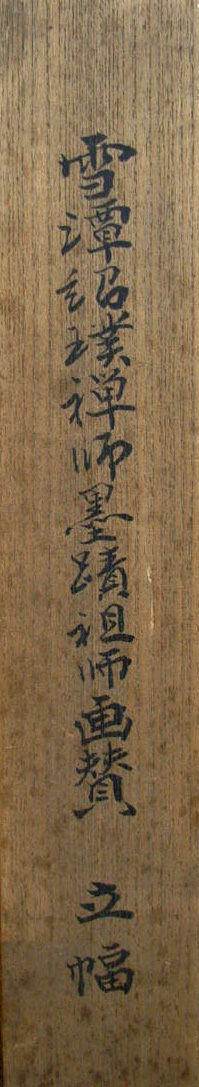 雪潭紹璞禅師墨蹟祖師画賛 立幅